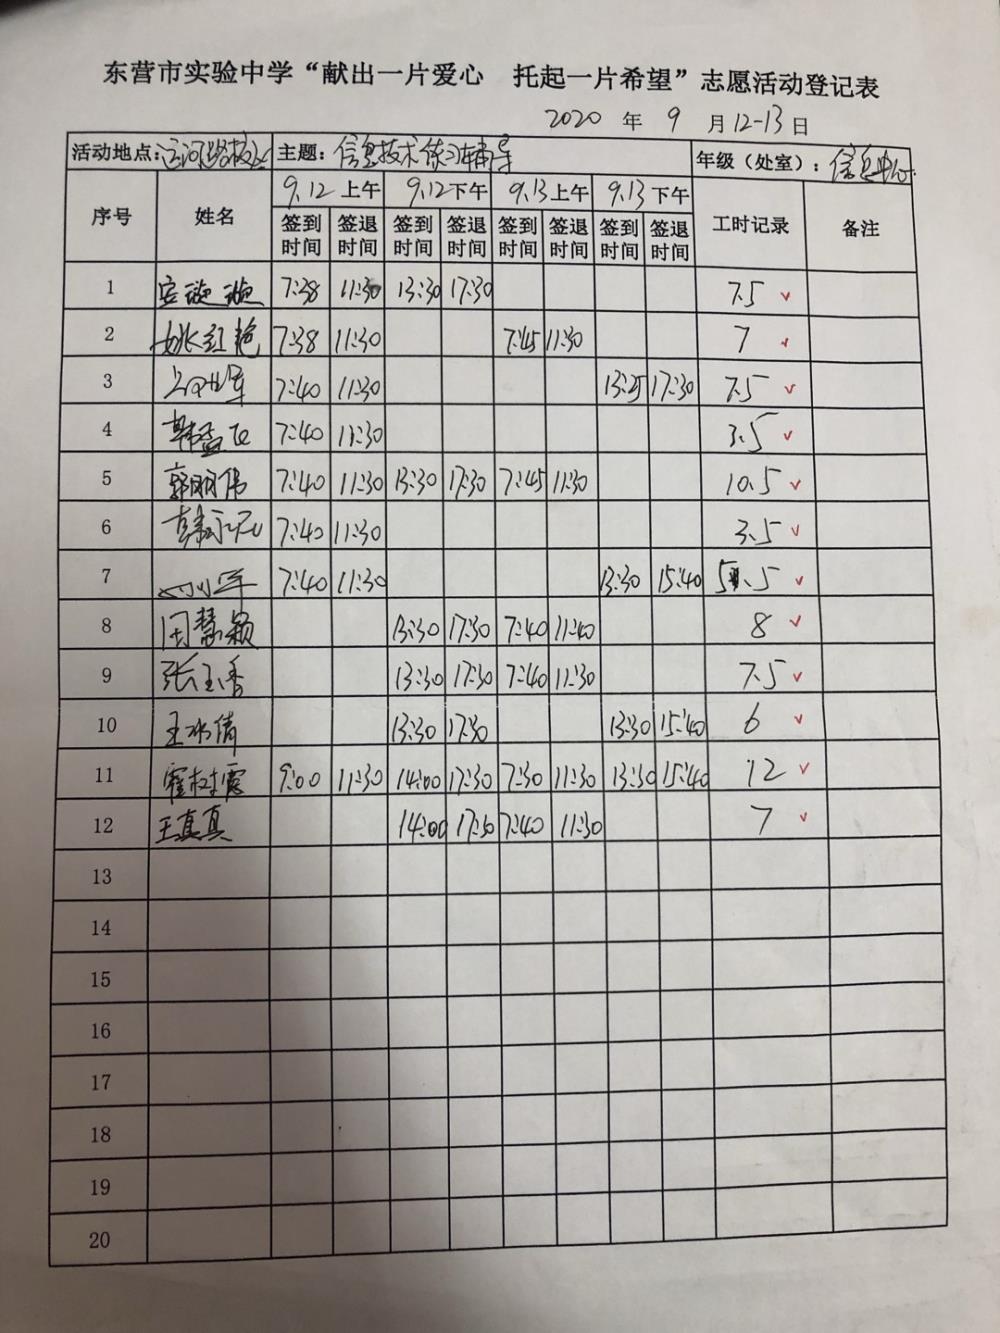 东营市实验中学“献出一片爱心 托起一片希望”志愿活动登记表
2020 年 9 月 12-13 日
活动地点：运河路校区 主题：信息技术练习辅导 年级（处室）：信息中心
序号 姓名 9.12 上午 9.12 下午 9.13 上午 9.13 下午 工时记录 备注
签到时间 签退时间 签到时间 签退时间 签到时间 签退时间 签到时间 签退时间
1 7:38 11:30 13:30 17:30 7.5 √
2 姚红艳 7:38 11:30 7:45 11:30 7 √
3 7:40 11:30 13:25 17:30 7.5 √
4 韩 7:40 11:30 3.5 √
5 郭丽伟 7:40 11:30 13:30 17:30 7:45 11:30 10.5 √
6 7:40 11:30 3.5 √
7 7:40 11:30 13:30 15:40 5.5 √
8 周慧颖 13:30 17:30 7:40 11:40 8 √
9 张玉香 13:30 17:30 7:40 11:30 7.5 √
10 王冰倩 13:30 17:30 13:30 15:40 6 √
11 霍树震 9:00 11:30 14:00 17:30 7:30 11:30 13:30 15:40 12 √
12 王真真 14:00 17:30 7:40 11:30 7 √
13
14
15
16
17
18
19
20